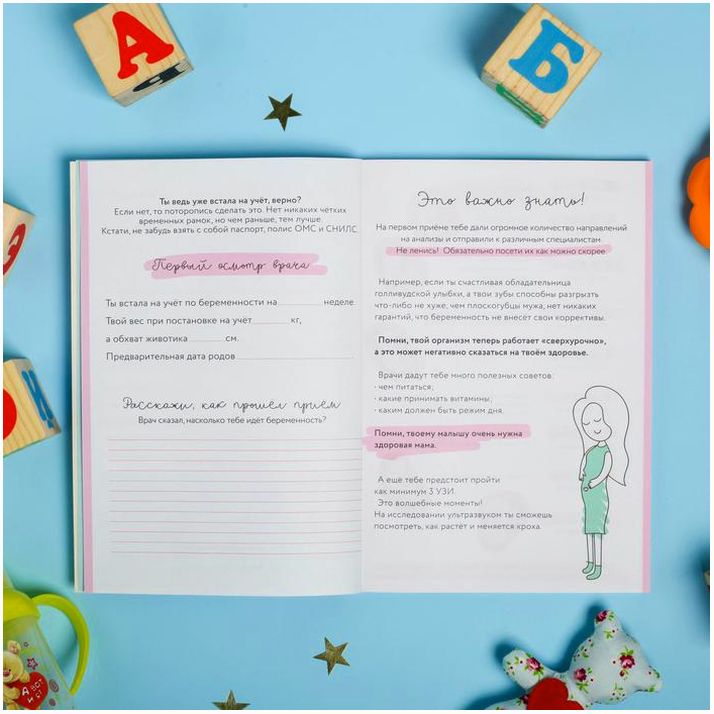 А
Б
Ты ведь уже встала на учёт, верно?
Если нет, то поторопись сделать это. Нет никаких чётких
временных рамок, но чем раньше, тем лучше.
Кстати, не забудь взять с собой паспорт, полис ОМС и СНИЛС.
Первый осмотр врача
Ты встала на учёт по беременности на неделе.
Твой вес при постановке на учёт кг,
а обхват животика см.
Предварительная дата родов
Расскажи, как прошёл приём
Врач сказал, насколько тебе идёт беременность?
Это важно знать!
На первом приёме тебе дали огромное количество направлений
на анализы и отправили к различным специалистам.
Не ленись! Обязательно посети их как можно скорее.
Например, если ты счастливая обладательница
голливудской улыбки, а твои зубы способны разгрызть
что-либо не хуже, чем плоскогубцы мужа, нет никаких
гарантий, что беременность не внесёт свои коррективы.
Помни, твой организм теперь работает «сверхурочно»,
а это может негативно сказаться на твоём здоровье.
Врачи дадут тебе много полезных советов:
- чем питаться;
- какие принимать витамины;
- каким должен быть режим дня.
Помни, твоему малышу очень нужна
здоровая мама.
А ещё тебе предстоит пройти
как минимум 3 УЗИ.
Это волшебные моменты!
На исследовании ультразвуком ты сможешь
посмотреть, как растёт и меняется кроха.